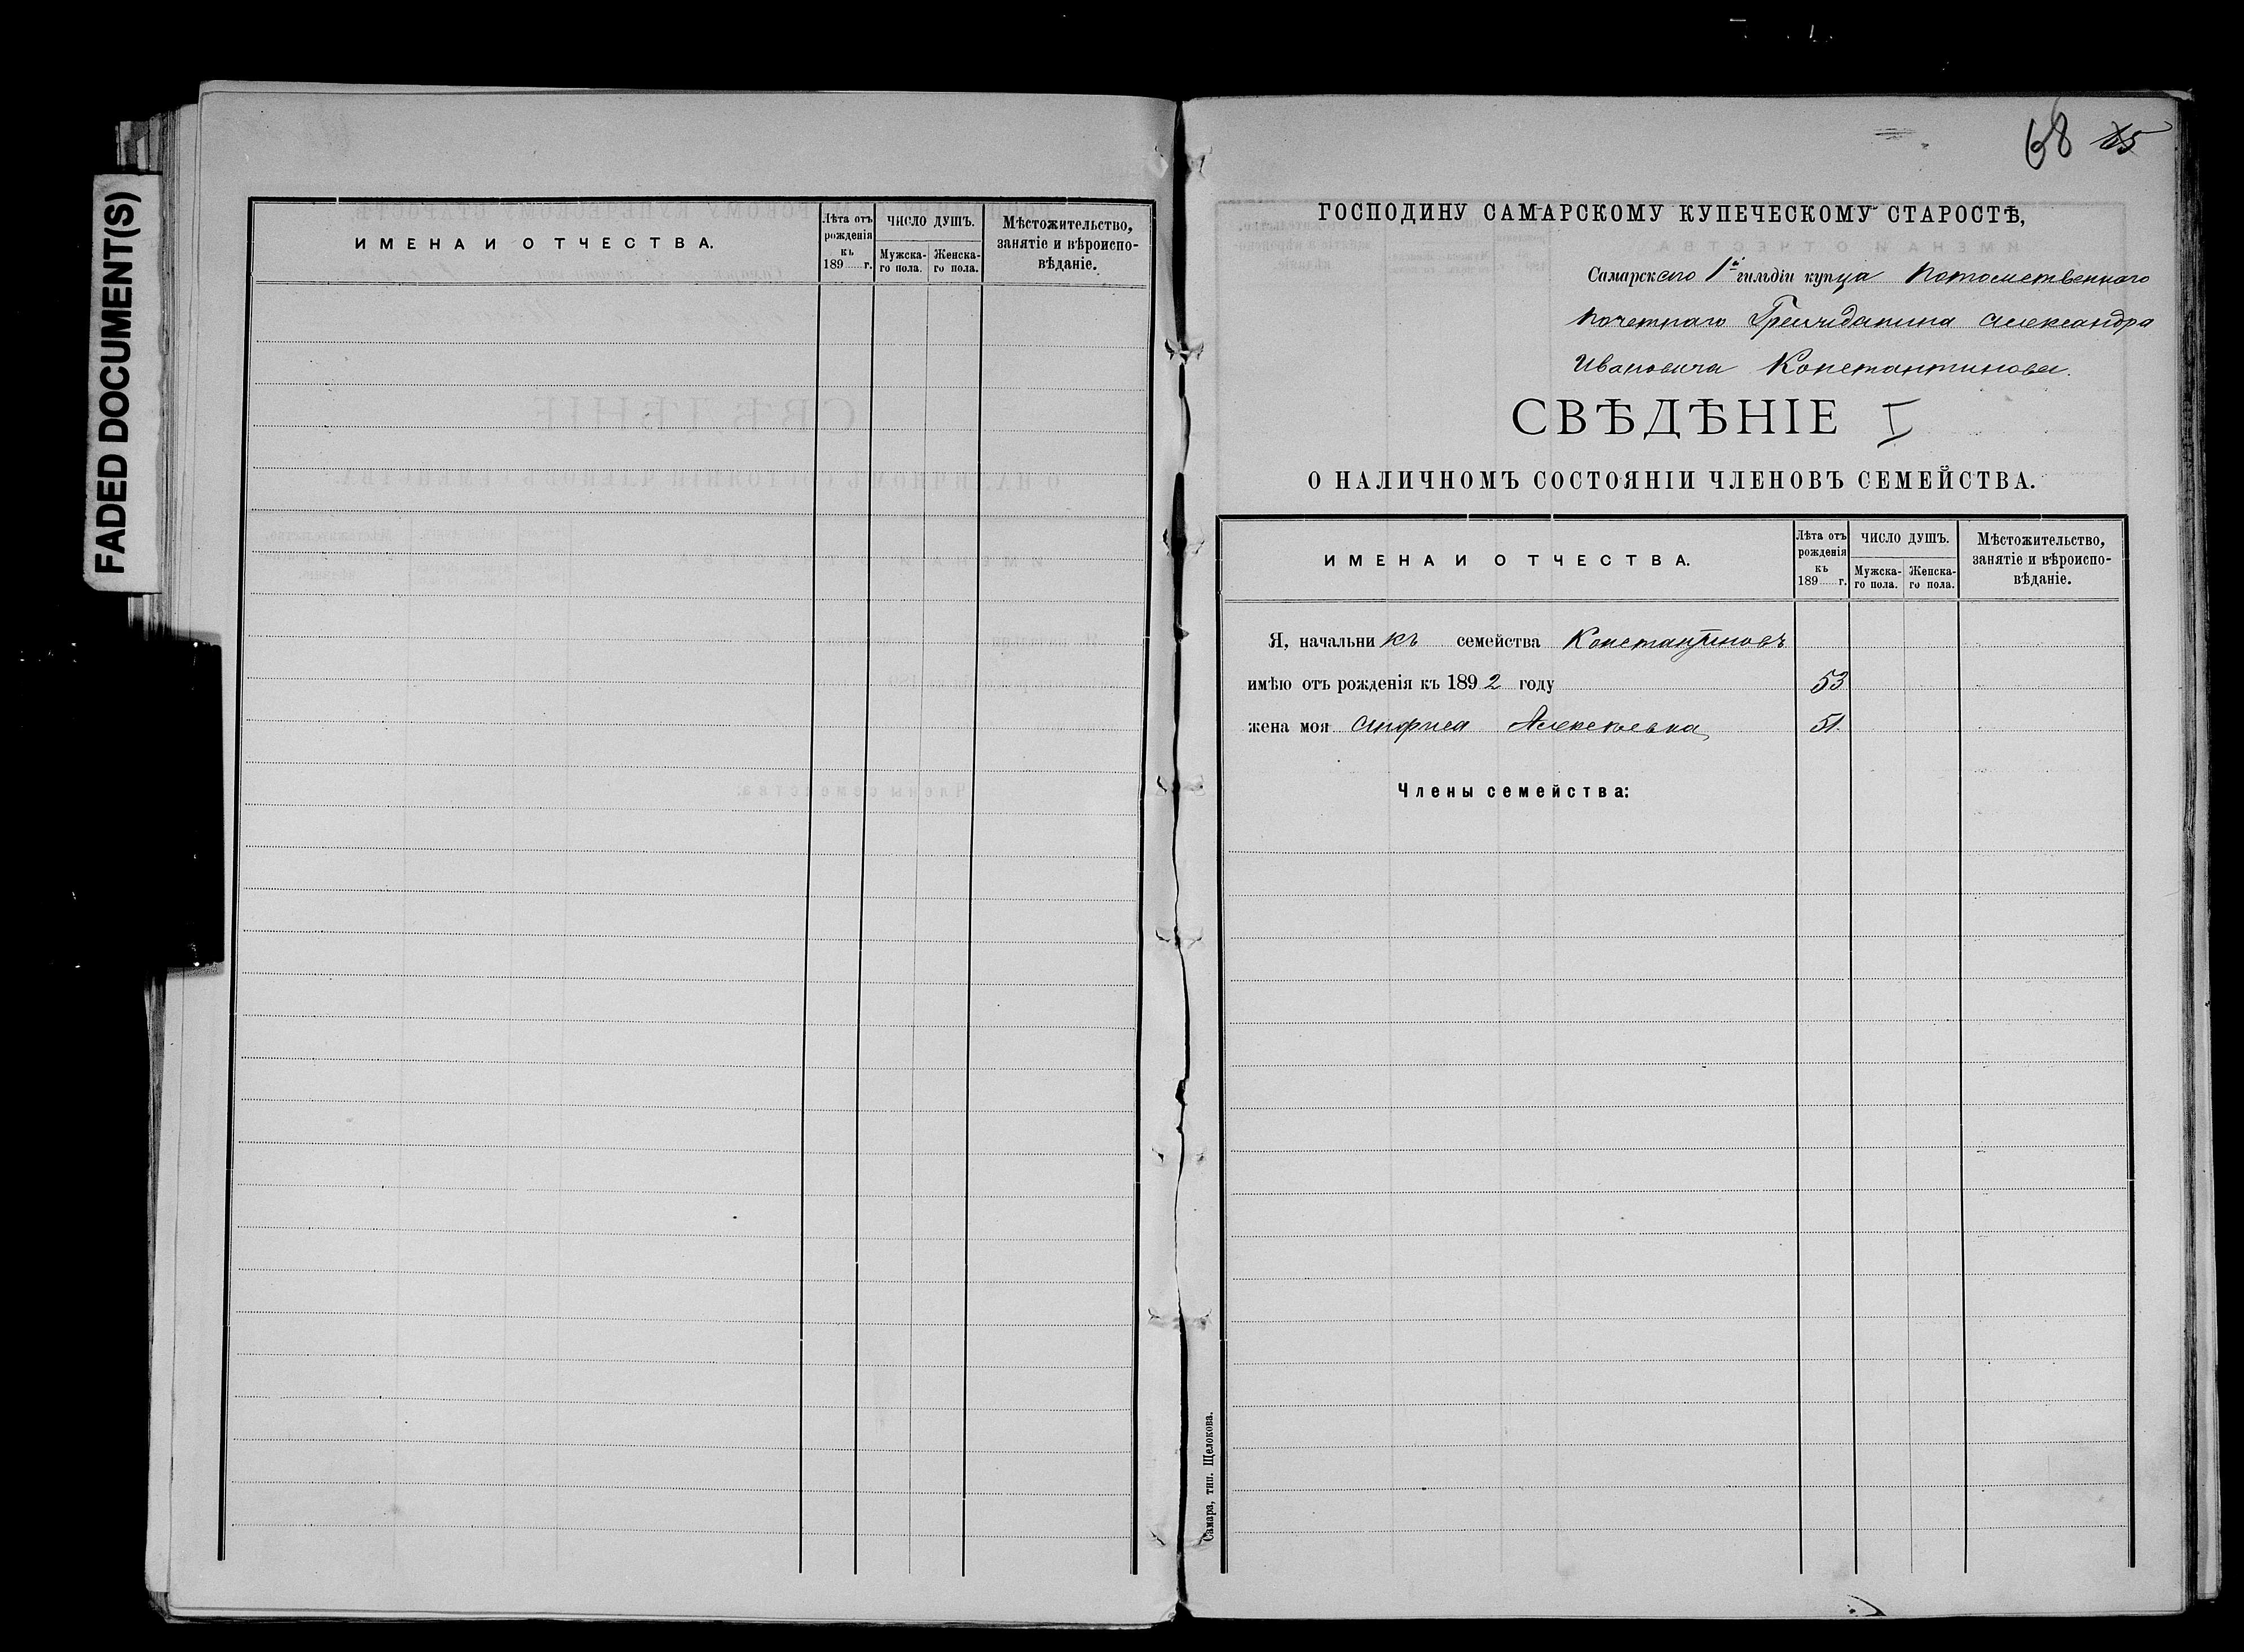 FADED DOCUMENT(S)
ИМЕНА И ОТЧЕСТВА.
Лѣта отъ рожденія къ 189 г.
ЧИСЛО ДУШЪ.
Мужска-го пола.
Женска-го пола.
Мѣстожительство, занятіе и вѣроиспо-вѣданіе.
68 65
ГОСПОДИНУ САМАРСКОМУ КУПЕЧЕСКОМУ СТАРОСТѢ,
Самарскаго 1й гильдіи купца Потомственнаго
Почетнаго Гражданина Александра
Ивановича Константинова.
СВѢДѢНІЕ I
О НАЛИЧНОМЪ СОСТОЯНІИ ЧЛЕНОВЪ СЕМЕЙСТВА.
ИМЕНА И ОТЧЕСТВА.
Лѣта отъ рожденія къ 189 г.
ЧИСЛО ДУШЪ.
Мужска-го пола.
Женска-го пола.
Мѣстожительство, занятіе и вѣроиспо-вѣданіе.
Я, начальникъ семейства Константиновъ
имѣю отъ рожденія къ 1892 году 53
жена моя Анфиса Алексѣевна 51.
Члены семейства:
Самара, тип. Щелокова.